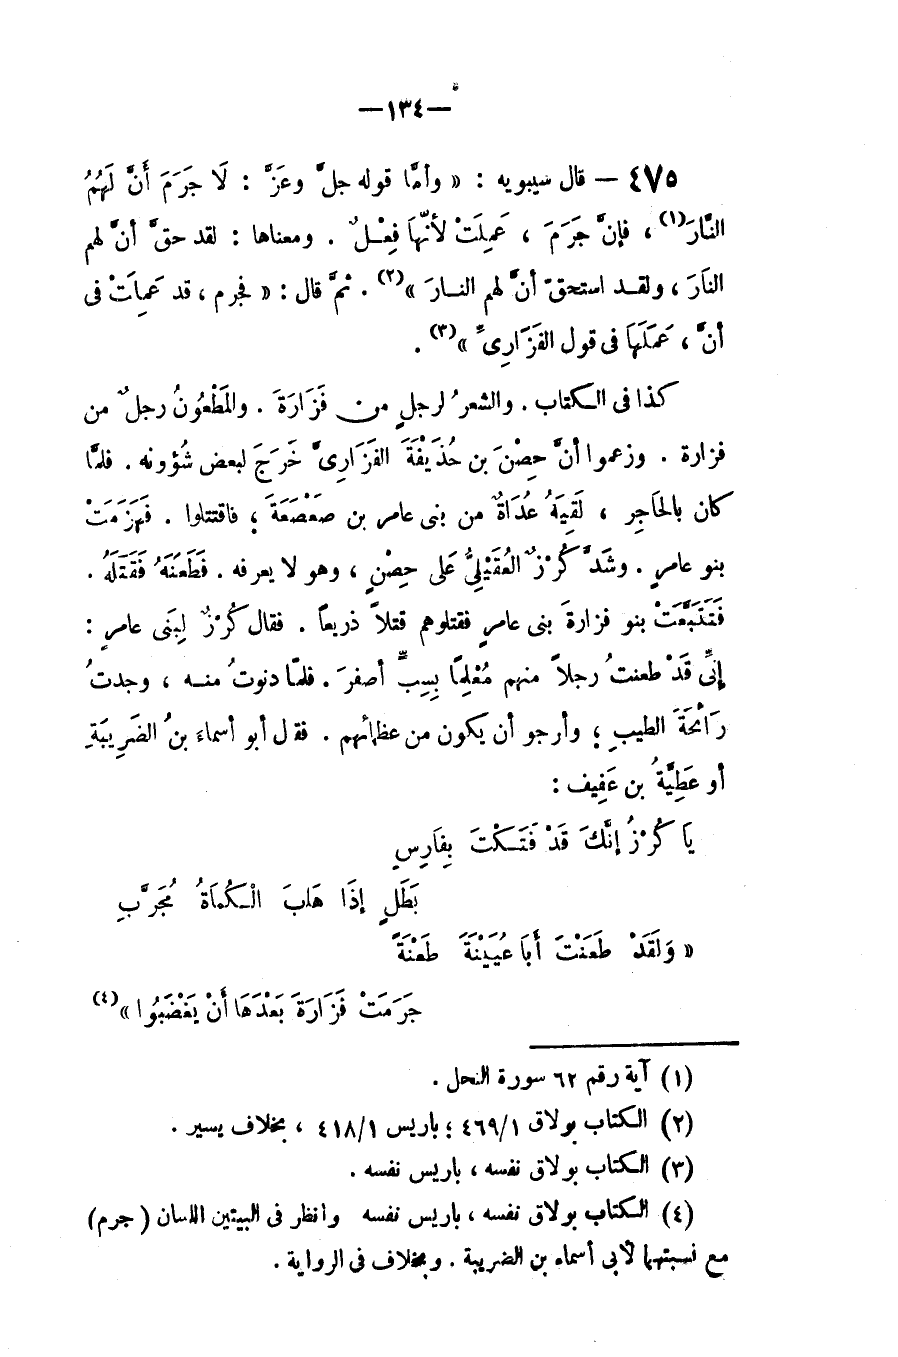 —١٣٤—
٤٧٥ — قال سيبويه : « وأمَّا قوله جلَّ وعَزَّ : لَا جَرَمَ أَنَّ لَهُمُ
النَّارَ(١) ، فإنَّ جَرَمَ ، عَمِلَتْ لأنّها فِعْـلٌ . ومعناها : لقد حقَّ أنَّ لهم
النَارَ ، ولقـد استحقّ أنَّ لهم النـارَ »(٢) . ثمَّ قال : « فجرم ، قد عَمِلَتْ فى
أنَّ ، عَمَلَهَا فى قول الفَزَارِىِّ »(٣) .
كذا فى الكتاب . والشعرُ لرجلٍ من فَزَارَةَ . والمَطْعُونُ رجلٌ من
فزارة . وزعموا أنَّ حِصْنَ بن حُذَيْفَةَ الفَزَارِىَّ خَرَجَ لبعض شُؤونه . فلمَّا
كان بالحَاجِرِ ، لَقِيَهُ عُدَاةٌ من بنى عامر بن صَعْصَعَةَ ؛ فاقتتلوا . فَهَزَمَتْ
بنو عامرٍ . وشَدَّ كُرْزٌ العُقَيْلِىُّ عَلَى حِصْنٍ ، وهو لا يعرفه . فَطَعَنَهُ فَقَتَلَهُ .
فَتَتَبَّعَتْ بنو فزارةَ بنى عامرٍ فقتلوهم قتلاً ذريعاً . فقال كُرْزٌ لِبَنى عامرٍ :
إنِّى قَدْ طعنتُ رجلاً منهم مُعْلِمًا بِسِبٍّ أصفرَ . فلمّا دنوتُ منـه ، وجدتُ
رَائحَةَ الطيبِ ؛ وأرجو أن يكون من عظمائهم . فقال أبو أسماء بنُ الضَرِيبَةِ
أو عَطِيَّةُ بن عَفِيف :
يَا كُرْزُ إنَّكَ قَدْ فَتَـكْتَ بِفَارِسٍ
بَطَلٍ إذَا هَابَ الْـكُمَاةُ مُجَرَّبِ
« وَلَقَدْ طَعَنْتَ أَبَا عُيَيْنَةَ طَعْنَةً
جَرَمَتْ فَزَارَةَ بَعْدَهَا أَنْ يَغْضَبُوا »(٤)
(١) آية رقم ٦٢ سورة النحل .
(٢) الكتاب بولاق ٤٦٩/١ ؛ باريس ٤١٨/١ ، بخلاف يسير .
(٣) الكتاب بولاق نفسه ، باريس نفسه .
(٤) الكتاب بولاق نفسه ، باريس نفسه وانظر فى البيتين اللسان ( جرم )
مع نسبتهما لأبى أسماء بن الضريبة . وبخلاف فى الرواية .